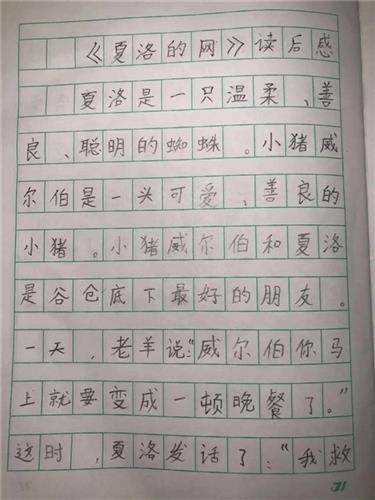 《夏洛的网》读后感
夏洛是一只温柔、善
良、聪明的蜘蛛。小猪威
尔伯是一头可爱、善良的
小猪。小猪威尔伯和夏洛
是谷仓底下最好的朋友。
一天，老羊说：“威尔伯你马
上就要变成一顿晚餐了。”
这时，夏洛发话了：“我救